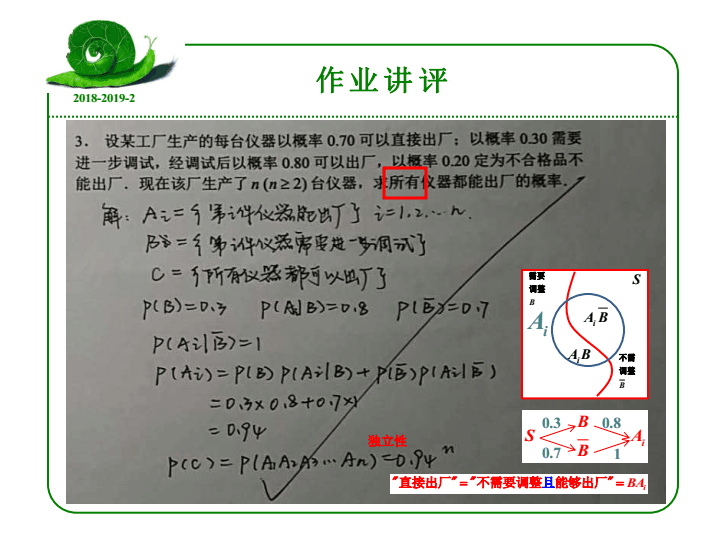 作业讲评
2018-2019-2
3. 设某工厂生产的每台仪器以概率 0.70 可以直接出厂；以概率 0.30 需要
进一步调试，经调试后以概率 0.80 可以出厂，以概率 0.20 定为不合格品不
能出厂．现在该厂生产了 n (n ≥ 2) 台仪器，求所有仪器都能出厂的概率．
解: Ai = {第i件仪器能出厂} i=1,2,…n.
Bi = {第i件仪器需要进一步调试}
C = {所有仪器都可以出厂}
P(B)=0.3 P(Ai|B)=0.8 P(B̅)=0.7
P(Ai|B̅)=1
P(Ai) = P(B) P(Ai|B) + P(B̅) P(Ai|B̅)
= 0.3×0.8+0.7×1
= 0.94
独立性
P(C) = P(A₁A₂A₃…An) = 0.94ⁿ
需要
调整
B
S
Ai
Ai B̅
Ai B
不需
调整
B̅
0.3 B 0.8
S Ai
0.7 B̅ 1
"直接出厂"="不需要调整且能够出厂"= B̅Ai